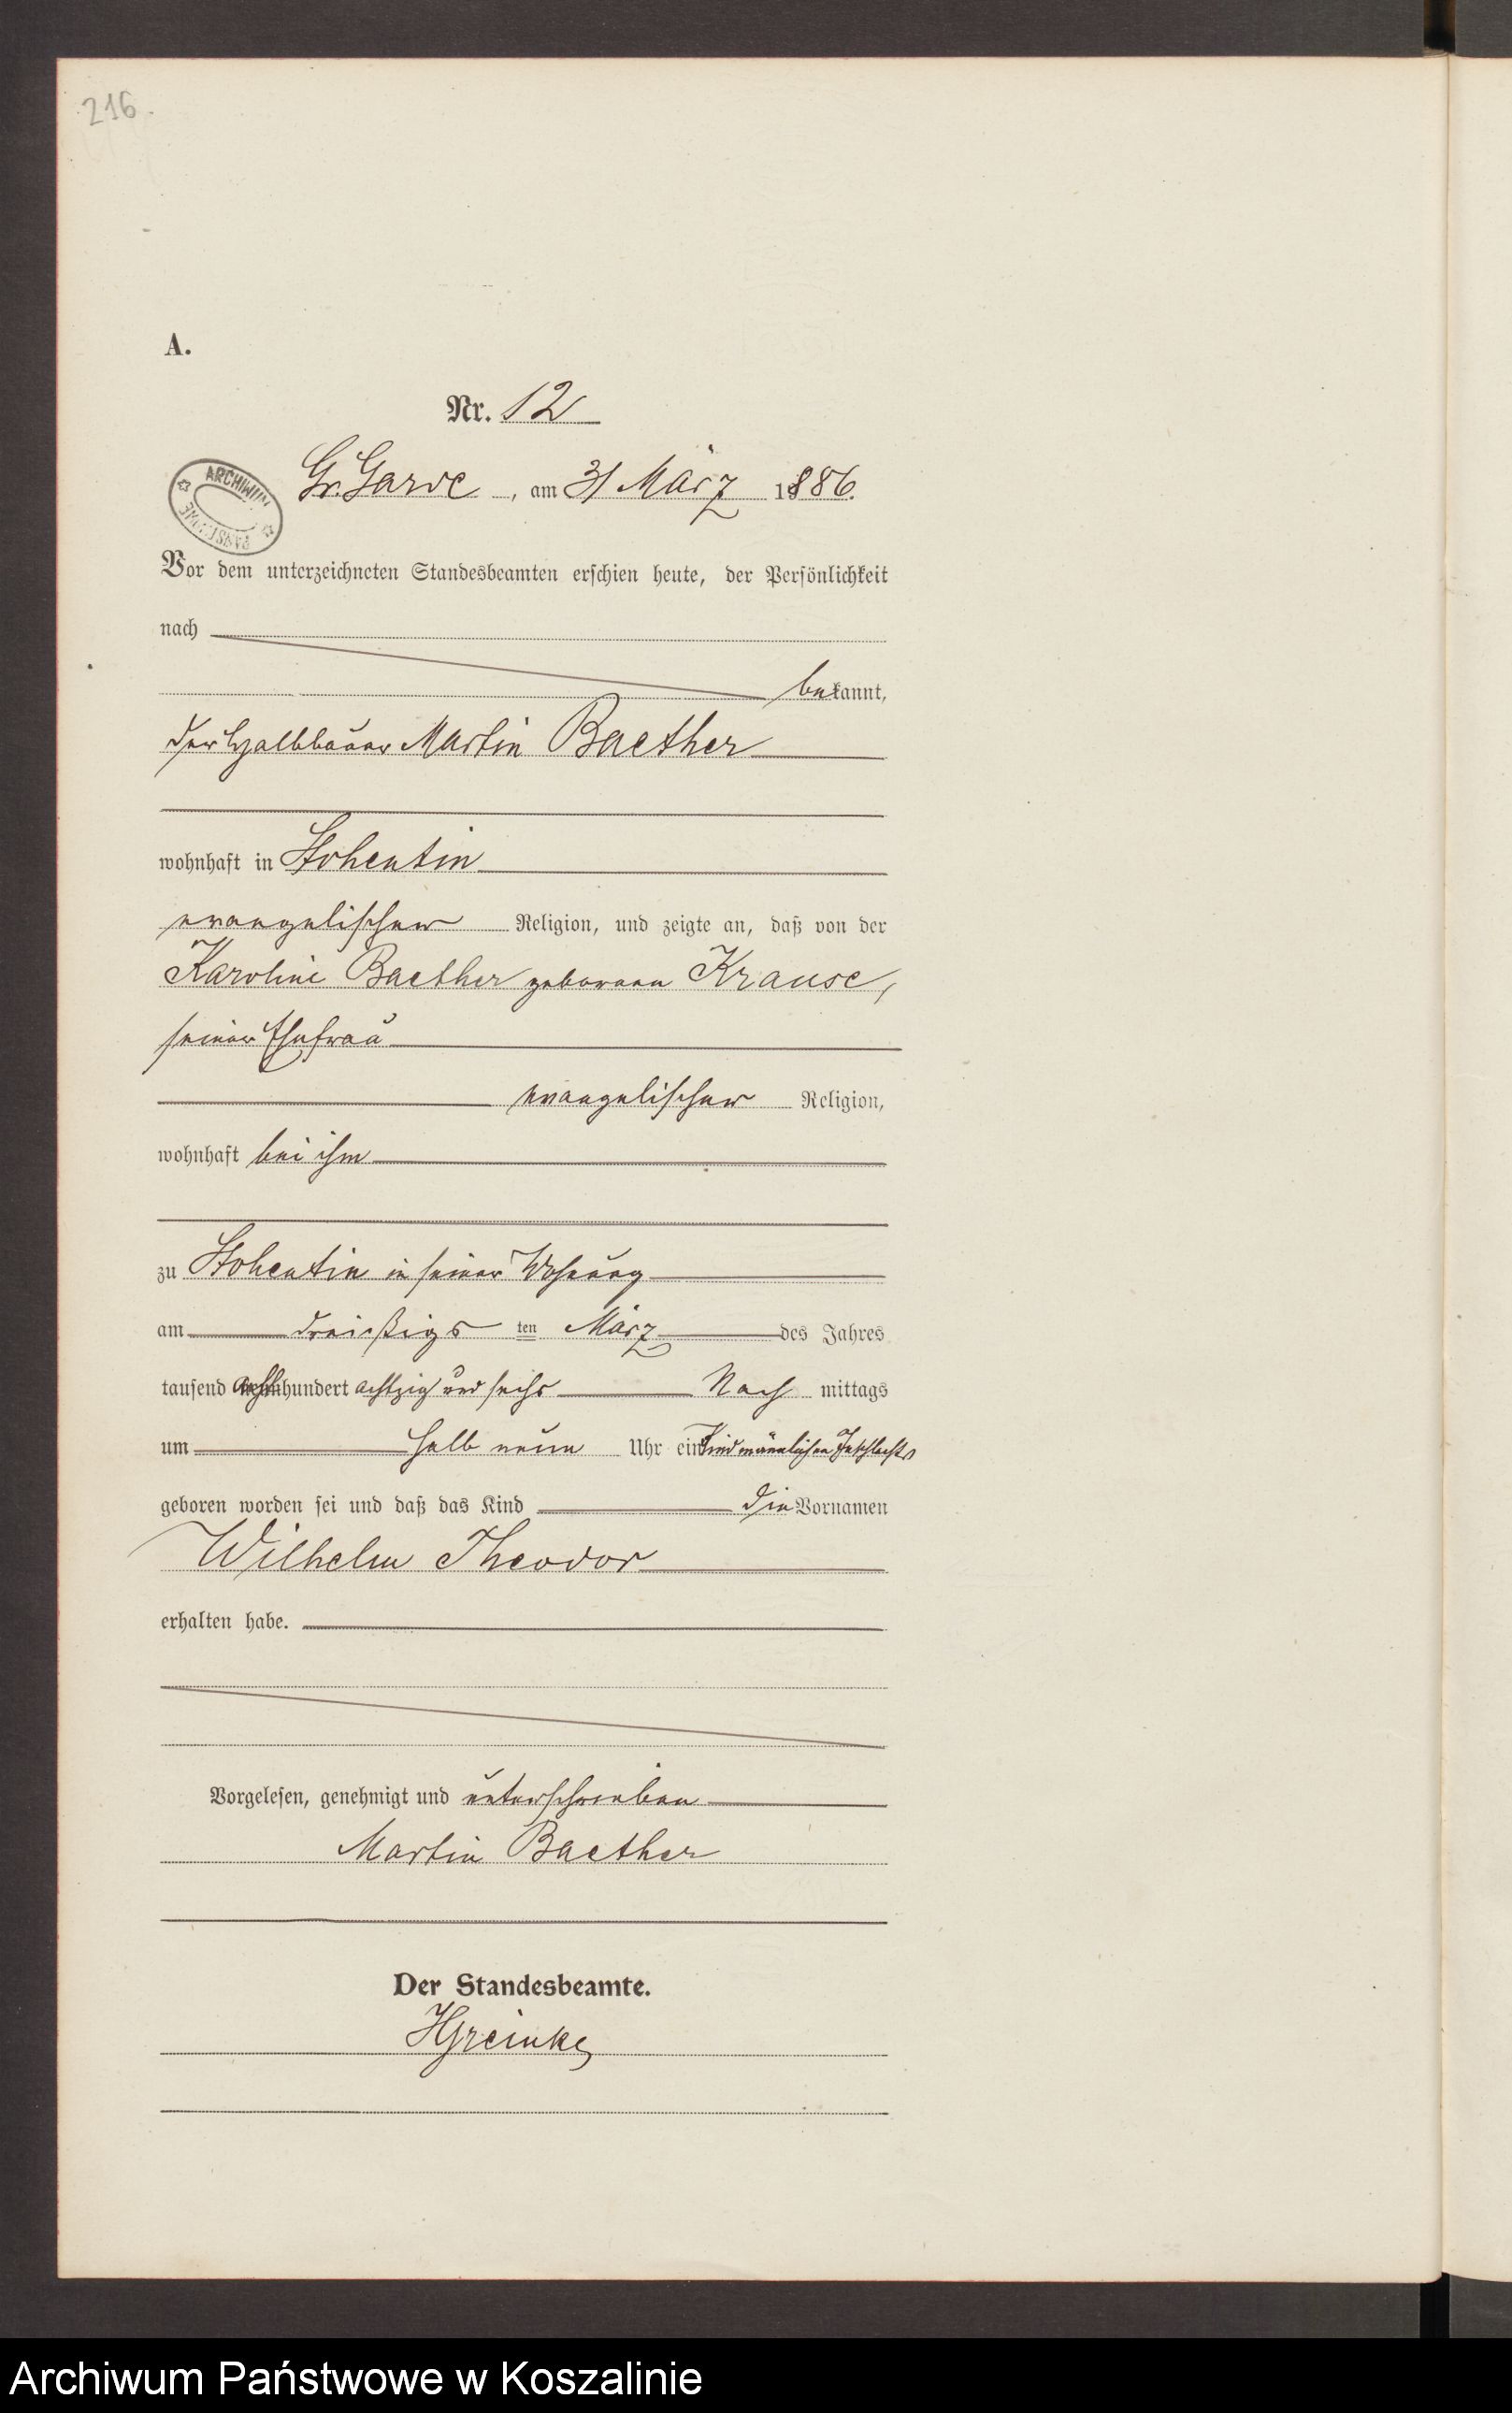 216.
A.
Nr. 12
ARCHIWUM
Gr. Garde, am 31 März 1886.
Vor dem unterzeichneten Standesbeamten erschien heute, der Persönlichkeit
nach
bekannt,
der Halbbauer Martin Baether
wohnhaft in Stohentin
evangelischer Religion, und zeigte an, daß von der
Karoline Baether geborenen Krause,
seiner Ehefrau
evangelischer Religion,
wohnhaft bei ihm
zu Stohentin in seiner Wohnung
am dreißigs ten März des Jahres
tausend achthundert achtzig und sechs Nach mittags
um halb neun Uhr ein Kind männlichen Geschlechts
geboren worden sei und daß das Kind die Vornamen
Wilhelm Theodor
erhalten habe.
Vorgelesen, genehmigt und unterschrieben
Martin Baether
Der Standesbeamte.
Archiwum Państwowe w Koszalinie